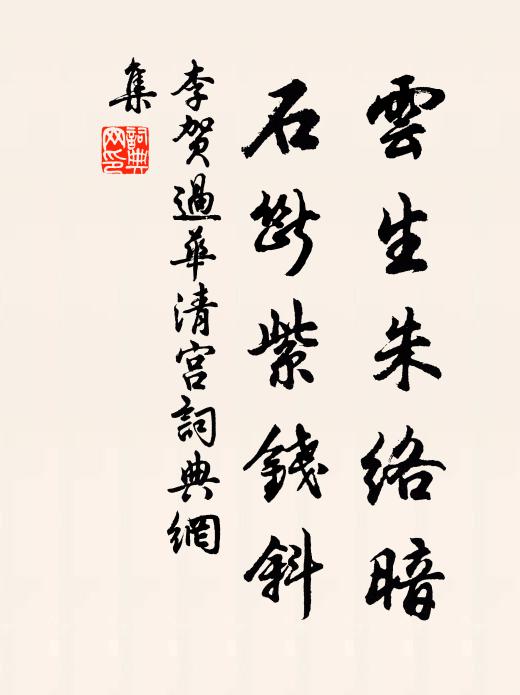 雲生朱絡暗
石斷紫錢斜
李賀過華清宮詞典網
集
詞典網印